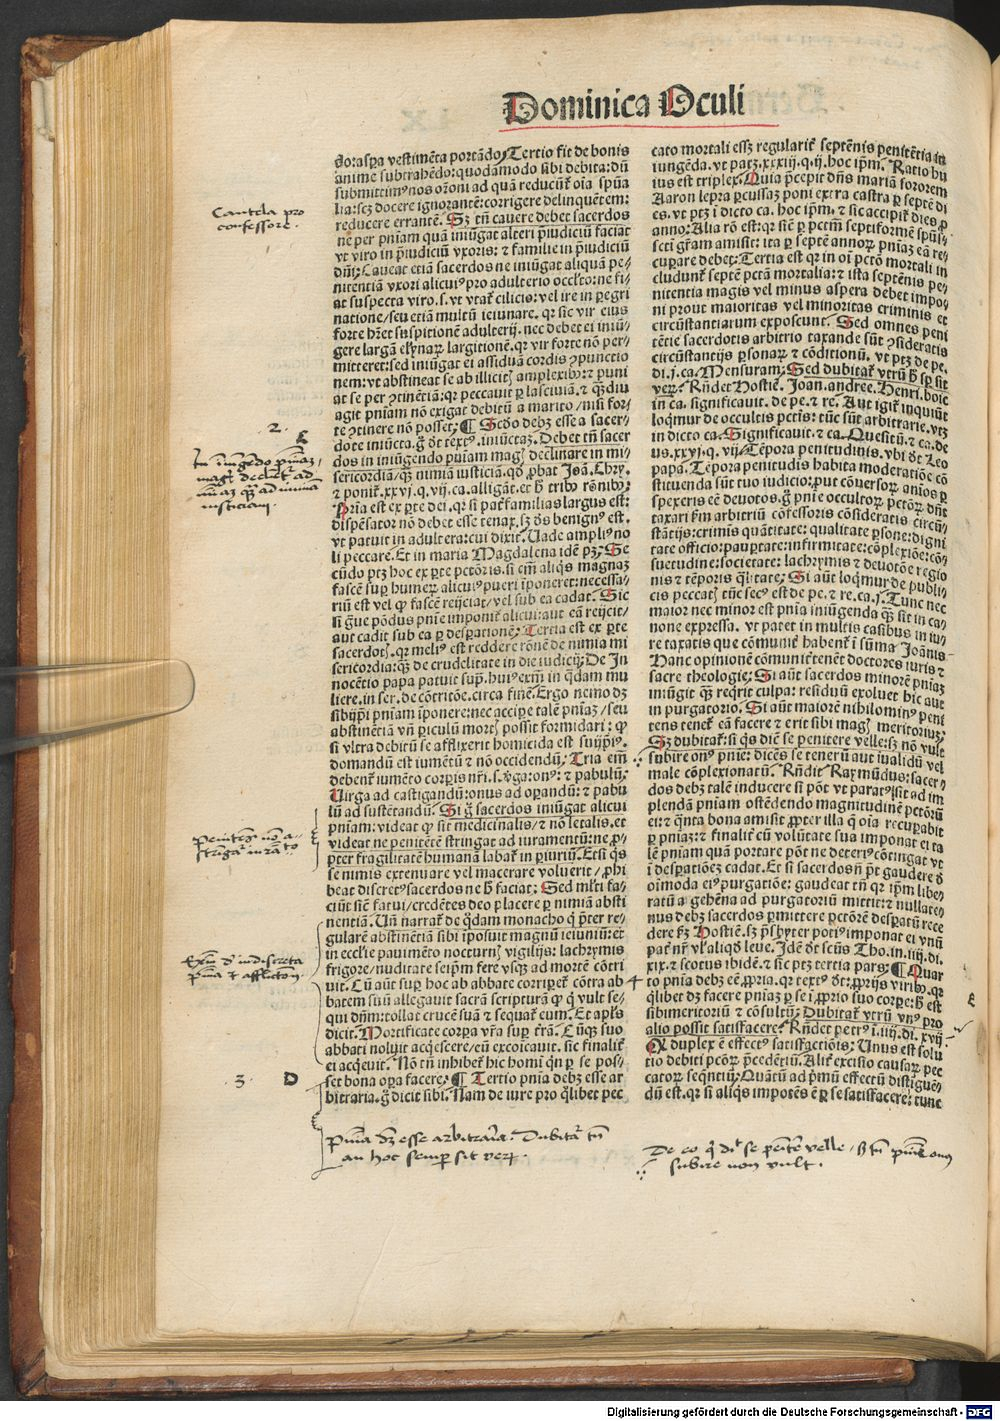 Dominica Oculi
do: aspa vestimēta portādo. Tertio fit de bonis
anime subtrahēdo: quodāmodo sibi debita: dū
submittimꝰ nos orōni ad quā reducūt oīa spūa
lia: scꝫ docere ignorantē: corrigere delinquētem:
reducere errantē. Sꝫ tn̄ cauere debet sacerdos
ne per pn̄iam quā iniūgat alteri p̄iudiciū faciat
vt viro in p̄iudiciū vxoris: ⁊ familie in p̄iudiciū
dn̄i. Caueat etiā sacerdos ne iniūgat aliquā pe
nitentiā vxori alicuiꝰ pro adulterio occl̄to: ne fi
at suspecta viro. s. vt vtat̄ cilicis: vel ire in pegri
natione/seu etiā multū ieiunare. qr sic vir eius
forte hr̄et suspitionē adulterij. nec debet ei iniū
gere largā elynaꝝ largitionē. qr vir forte nō per
mitteret: sed iniūgat ei assiduā cordis ɔpunctio
nem: vt abstineat se ab illicitꝭ amplexibꝰ: ⁊ puni
at se per ɔtinētiā: qr peccauit p lasciuiā. ⁊ q̄ꝫdiu
agit pn̄iam nō exigat debitū a marito/nisi for
te ɔtinere nō posset. ¶ Scd̄o debꝫ esse a sacer
dote iniūcta. ḡ dr̄ textꝰ. iniūctaꝫ. Debet tn̄ sacer
dos in iniūgendo pn̄iam magꝭ declinare in mi
sericordiā/q̄ꝫ nimiā iusticiā. qd̄ ꝓbat Joā. Chry.
⁊ ponit̄. xxvj. q. vij. ca. alligāt. et h̄ tribꝰ rōnibꝰ.
Pria est ex pte dei. qr si pat̄familias largus est:
dispēsator nō debet esse tenax. sꝫ dōs benignꝰ est.
vt patuit in adultera: cui dixit. Uade ampliꝰ no
li peccare. Et in maria Magdalena idē pꝫ. Se
cūdo ptꝫ hoc ex pte pctōris. si em̄ aliq̄s magnaꝫ
fascē sup humeꝝ alicuiꝰ pueri īponeret: necessa
riū est vel ꝙ fascē reijciat/vel sub ea cadat. Sic
si ḡue pōdus pn̄ie imponit̄ alicui: aut eā reijcit/
aut cadit sub ea p desꝑationē. Tertia est ex pte
sacerdotꝭ. qr meliꝰ est reddere rōnē de nimia mi
sericordia: q̄ꝫ de crudelitate in die iudicij. De In
nocētio papa patuit sup̄. huiꝰ exm̄ in q̄dam mu
liere. in ser. de cōtritōe. circa finē. Ergo nemo dꝫ
sibijpi pn̄iam īponere: nec accipe talē pn̄iaꝫ/seu
abstinētiā vn̄ piculū mortꝭ possit formidari: ꝙ
si vltra debitū se afflixerit homicida est suijpiꝰ.
domandū est iumētū ⁊ nō occidendū. Tria em̄
debent̄ iumēto corpis nr̄i. s. v̓ga: onꝰ: ⁊ pabulū.
Uirga ad castigandū: onus ad opandū: ⁊ pabu
lū ad sustētandū. Si ḡ sacerdos iniūgat alicui
pn̄iam: videat ꝙ sit medicinalis/⁊ nō letalis. et
videat ne penitētē stringat ad iuramentū: ne ꝓ
pter fragilitatē humanā labat̄ in piuriū. Etsi q̄s
se nimis extenuare vel macerare voluerit/ꝓhi
beat discretꝰ sacerdos ne h̄ faciat. Sed ml̄ti fa
ciūt siē fatui/credētes deo placere p nimiā absti
nentiā. Un̄ narrat̄ de q̄dam monacho q̄ pter re
gularē abstinētiā sibi īposuit magnū ieiuniū: et
in eccl̄ie pauimēto nocturnꝭ vigilijs: lachrymis
frigore/nuditate seip̄m fere vsq̄ꝫ ad mortē cōtri
uit. Cū aūt sup̄ hoc ab abbate corripet̄ cōtra ab
batem suū allegauit sacrā scripturā ꝙ q̄ vult se/
qui dn̄m: tollat crucē suā ⁊ sequat̄ eum. Et apl̄s
dicit. Mortificate corpa vr̄a sup̄ t̄rā. Cūq̄ꝫ suo
abbati noluit acq̄escere/eū excōicauit. sic finalit̄
ei acq̄euit. Nō tn̄ inhibet̄ hic homī qn̄ p se pos/
set bona opa facere. ¶ Tertio pn̄ia debꝫ esse ar
bitraria. ḡ dicit sibi. Nam de iure pro q̄libet pec
cato mortali essꝫ regularit̄ septēnis penitētia in
iungēda. vt patꝫ. xxxiij. q. ij. hoc ip̄m. Ratio hu
ius est triplex. Quia p̄cepit dn̄s mariā sororem
Aaron lepra pcussaꝫ poni extra castra p septē di
es. vt ptꝫ ī dicto ca. hoc ip̄m. ⁊ sic accipit̄ dies ꝓ
anno. Alia rō est: qr siē p pctm̄ septiformē spūs/
scti gr̄am amisit: ita p septē annoꝝ pn̄iaꝫ eā re/
cupare debet. Tertia est qr in oī pctō mortali in
cludunt̄ septē pctā mortalia: ⁊ ista septēnis pe/
nitentia magis vel minus aspera debet impo/
ni prout maioritas vel minoritas criminis et
circūstantiarum exposcunt. Sed omnes peni
tētie sacerdotis arbitrio taxande sūt ɔsideratis
circūstantijs psonaꝝ ⁊ cōditionū. vt ptꝫ de pe.
di. j. ca. Mensuram. Sed dubitat̄ vtrū h̄ sp sit
veꝝ. Rn̄det Hostiē. Joan. andree. Henri. boic
in ca. significauit. de pe. ⁊ re. Aut igit̄ inquiūt
loq̄mur de occultis pctis: tūc sūt arbitrarie. vtꝫ
in dicto ca. Significauit. ⁊ ca. Quesitū. ⁊ ca. de-
us. xxvj. q. vij. Tēpora penitudinis. vbi dr̄ Leo
papa. Tēpora penitudis habita moderatiōe cō
stituenda sūt tuo iudicio: ꝓut cōuersoꝝ anīos p
spexeris eē deuotos. ḡ pn̄ie occultoꝝ pctoꝝ dn̄t
taxari fm̄ arbitriū cōfessoris cōsideratis circū/
stātijs: crimis quātitate: qualitate psone: digni
tate officio: paupertate: infirmitate: cōplexiōe: cō
suetudine: societate: lachrymis ⁊ deuotōe regio
nis ⁊ tēporis q̄litate. Si aūt loq̄mur de publi
cis peccatꝭ tūc secꝰ est de pe. ⁊ re. ca. j. Tunc nec
maior nec minor est pn̄ia iniūgenda q̄ꝫ sit in ca/
none expressa. vt patet in multis casibus in iu/
re taxatis que cōmunit̄ habent̄ ī sūma Joānis
Hanc opinionē cōmunit̄ tenēt doctores iuris ⁊
sacre theologie. Si aūt sacerdos minorē pn̄iaꝫ
iniūgit q̄ꝫ reqrit culpa: residuū exoluet hic aut
in purgatorio. Si aūt maiorē nihilominꝰ peni
tens tenet̄ eā facere ⁊ erit sibi magꝭ meritoriuꝫ.
Sꝫ dubitat̄: si q̄s diē se penitere velle: sꝫ nō vult
subire onꝰ pn̄ie: dicēs se tenerū aut īualidū vel
male cōplexionatū. Rn̄dit Raymūdus: sacer/
dos debꝫ talē inducere si pōt vt paratꝰ sit ad im
plendā pn̄iam ostēdendo magnitudinē pctōrū
ei: ⁊ q̄nta bona amisit ꝓpter illa q̄ oīa recupabit
p pn̄iaꝫ: ⁊ finalit̄ cū volūtate sua imponat ei ta
lē pn̄iam quā portare pōt ne deteriꝰ cōtingat vt
ī despatiōeꝫ cadat. Et si sacerdos nō p̄t gaudere d̄
oīmoda eiꝰ purgatiōe: gaudeat tn̄ qr ip̄m libe/
ratū a gehēna ad purgatoriū mittit: ⁊ nullate/
nus debꝫ sacerdos pmittere pctōrē despatū rece
dere fꝫ Hostiē. sꝫ p̄sbyter potiꝰ imponat ei vnū
pat̄ nr̄ vl̄ aliqd̄ leue. Idē dr̄ scūs Tho. in. iiij. di.
xix. ⁊ scotus ibidē. ⁊ sic ptꝫ tertia pars. ¶ Quar
to pn̄ia debꝫ eē ꝓpria. qr textꝰ dr̄: ꝓprijs viribꝰ. qr
q̄libet dꝫ facere pn̄iaꝫ p se ī ꝓprio suo corpe: h̄ est
sibimeritoriū ⁊ cōsultū. Dubitat̄ vtrū vnꝰ pro
alio possit satisfacere. Rn̄det petrꝰ ī. iiij. di. xvij.
Qr duplex ē effectꝰ satisfactiōis. Unus est solu
tio debiti pctoꝝ p̄cedētiū. Alit̄ excisio causaꝝ pec
catoꝝ seq̄ntiū. Quātū ad pmū effectū distiguē/
dū est. qr si aliq̄s impotēs ē p se satisfacere: tunc
Cautela pro
confessore.
.2.
In iniūgēdo pn̄iaꝫ,
magꝭ declinet̄ ad
mīaꝫ q̄ꝫ ad nimiā
iusticiam.
Penitēs nō a-
stringat̄ iurāto
Exm̄ d̄ indiscreta
pn̄ia ⁊ afflictōe
.3.
D
E
Pn̄ia dꝫ esse arbitraria. Dubitat̄ tn̄
an hoc semp sit veꝝ.
De eo q̄ dīt se penitere velle, sꝫ tn̄ pn̄ie onꝰ
subire non vult.
Digitalisierung gefördert durch die Deutsche Forschungsgemeinschaft - DFG